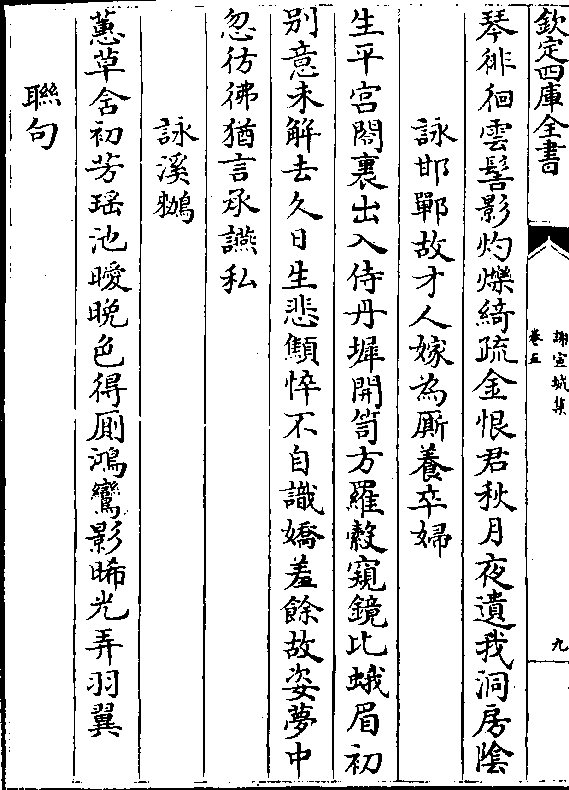 欽定四庫全書
謝宣城集
卷五
九
琴徘徊雲髻影灼爍綺疏金恨君秋月夜遺我洞房陰
詠邯鄲故才人嫁為厮養卒婦
生平宮閣裏出入侍丹墀開笥方羅縠窺鏡比蛾眉初
别意未解去久日生悲顦悴不自識嬌羞餘故姿夢中
忽彷彿猶言承讌私
詠溪鷘
蕙草含初芳瑶池曖晚色得厠鴻鸞影晞光弄羽翼
聯句